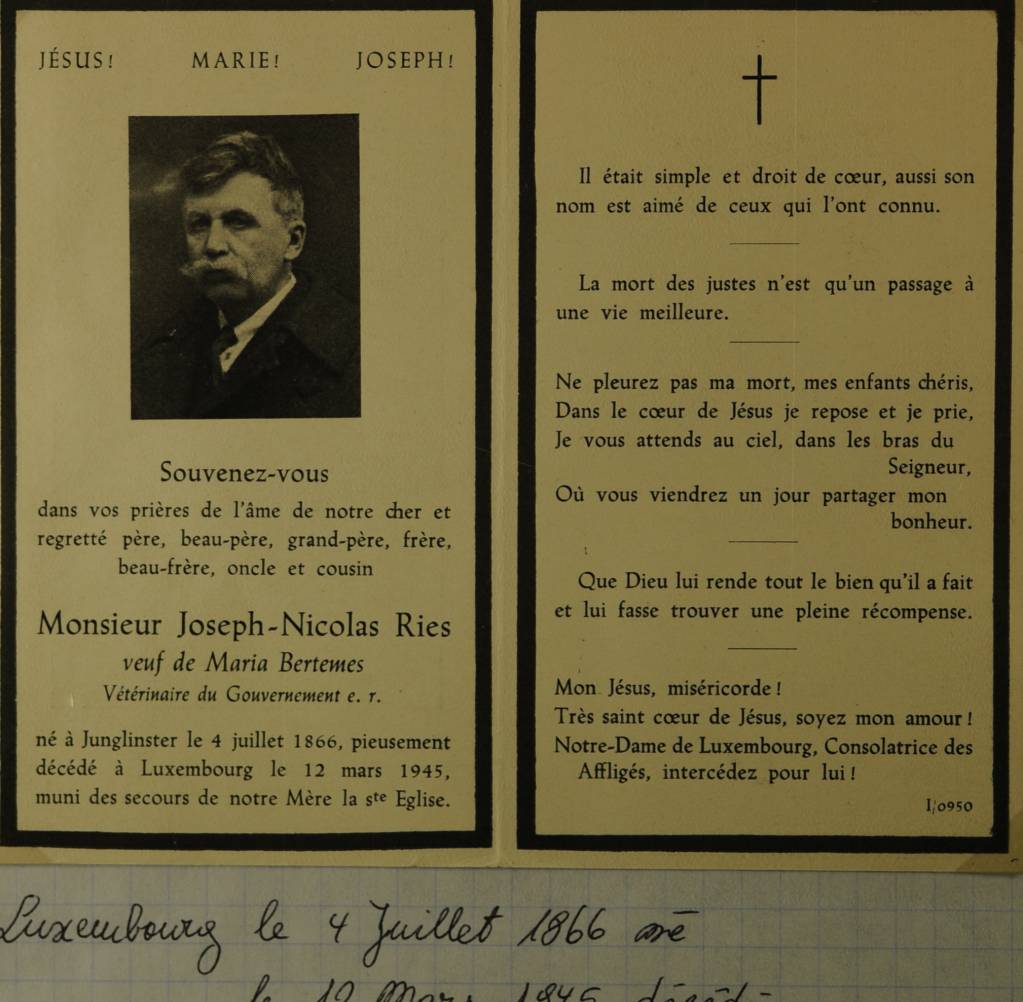 JÉSUS! MARIE! JOSEPH!
Souvenez-vous
dans vos prières de l'âme de notre cher et
regretté père, beau-père, grand-père, frère,
beau-frère, oncle et cousin
Monsieur Joseph-Nicolas Ries
veuf de Maria Bertemes
Vétérinaire du Gouvernement e. r.
né à Junglinster le 4 juillet 1866, pieusement
décédé à Luxembourg le 12 mars 1945,
muni des secours de notre Mère la ste Eglise.
Il était simple et droit de cœur, aussi son
nom est aimé de ceux qui l'ont connu.
La mort des justes n'est qu'un passage à
une vie meilleure.
Ne pleurez pas ma mort, mes enfants chéris,
Dans le cœur de Jésus je repose et je prie,
Je vous attends au ciel, dans les bras du
Seigneur,
Où vous viendrez un jour partager mon
bonheur.
Que Dieu lui rende tout le bien qu'il a fait
et lui fasse trouver une pleine récompense.
Mon Jésus, miséricorde !
Très saint cœur de Jésus, soyez mon amour !
Notre-Dame de Luxembourg, Consolatrice des
Affligés, intercédez pour lui !
I/0950
Luxembourg le 4 Juillet 1866
le 12 Mars 1945